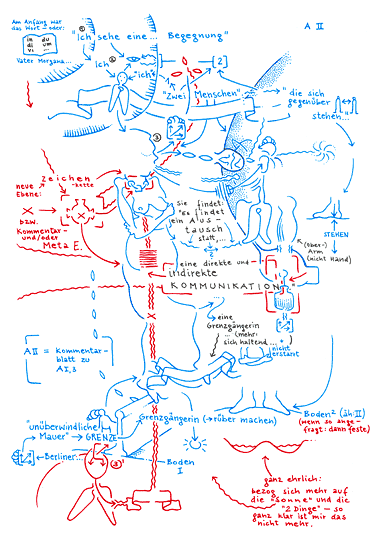 Am Anfang war
das Wort – oder:
in du
di um
vi ...
Vater Morgana...
①
"ich sehe eine... Begegnung"
A II
ich ②
"ich"
[2]
"Zwei Menschen"
"die sich
gegenüber
stehen...
③
Zeichen
-kette
neue
Ebene:
X →
bzw.
Kommentar-
und/oder
Meta E.
sie findet:
"Es findet
ein Aus-
tausch
statt,...
?
STEHEN
(Über-)
Arm
(nicht Hand)
eine direkte und
indirekte
KOMMUNIKATION
eine
Grenzgängerin
... (mehr:
sich haltend...")
nicht
erstarrt
AII = Kommentar-
blatt zu
AI,3
Boden² (äh: II)
(wenn so ange-
fragt: dann feste)
Grenzgängerin (→ rüber machen)
"unüberwindliche
Mauer" → GRENZE
Berliner...
Boden
I
③
ganz ehrlich:
bezog sich mehr auf
die "Sonne" und die
"2 Dinge" – so
ganz klar ist mir das
nicht mehr.